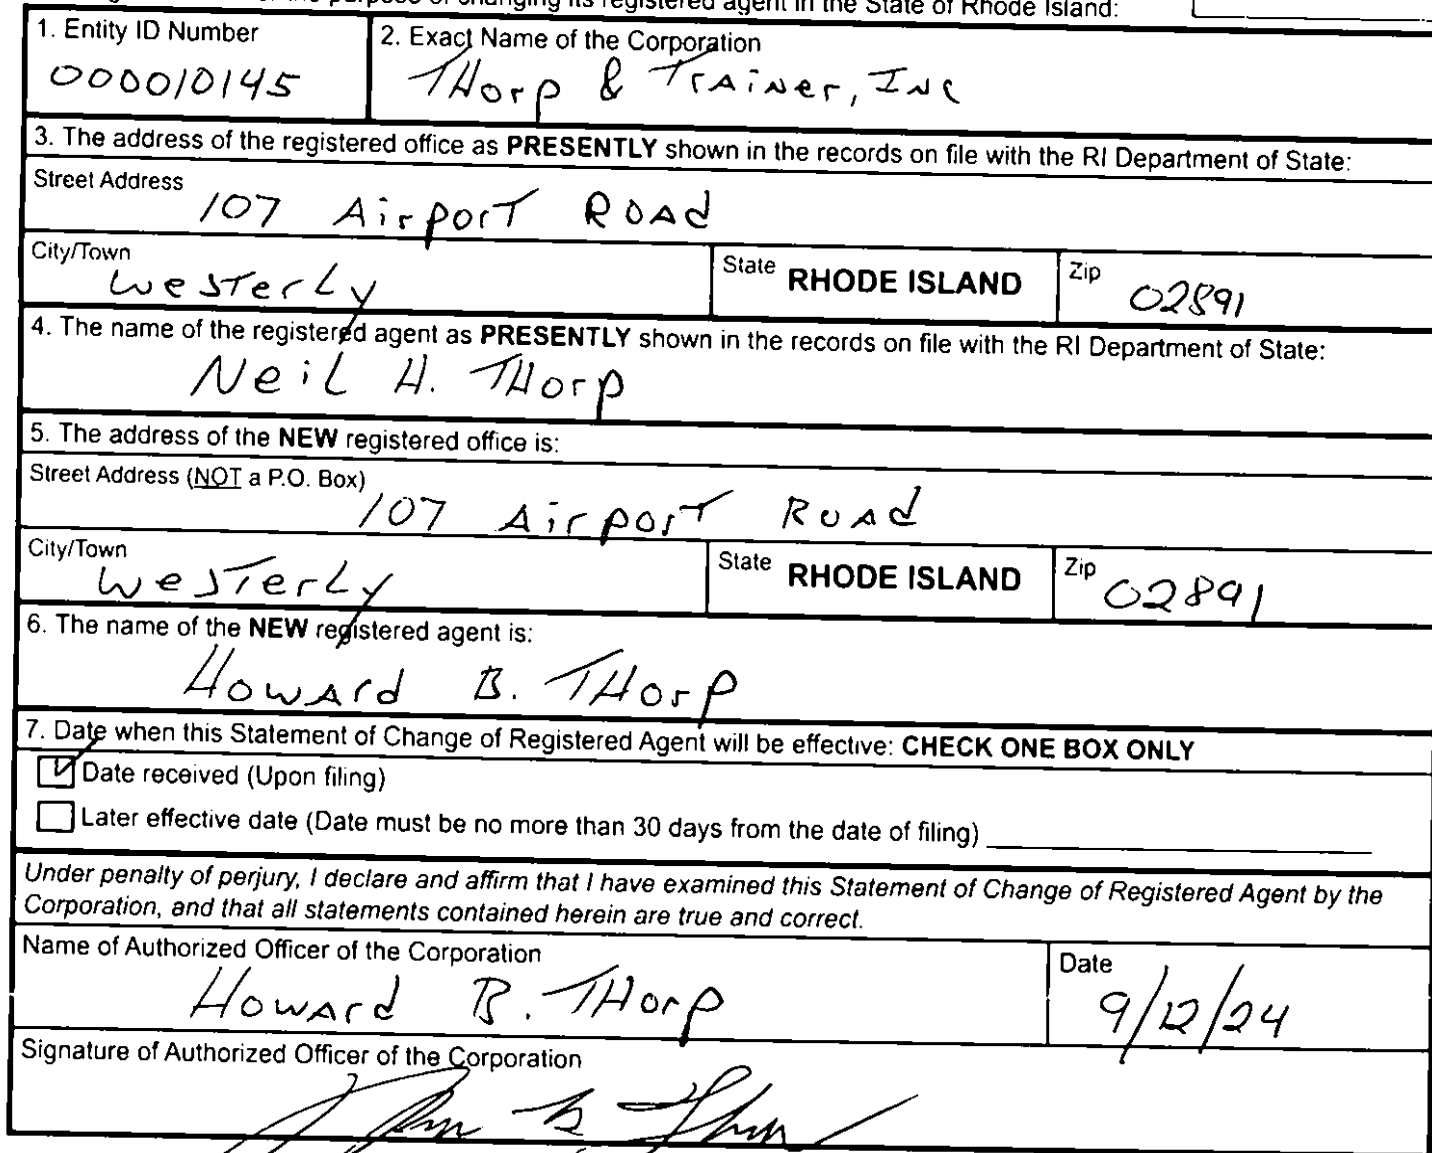 the purpose of changing its registered agent in the State of Rhode Island:
1. Entity ID Number
000010145
2. Exact Name of the Corporation
THorp & TrAiNer, INC
3. The address of the registered office as PRESENTLY shown in the records on file with the RI Department of State:
Street Address
107 Airport ROAd
City/Town
WesTerLy
State RHODE ISLAND
Zip 02891
4. The name of the registered agent as PRESENTLY shown in the records on file with the RI Department of State:
NeiL H. THorp
5. The address of the NEW registered office is:
Street Address (NOT a P.O. Box)
107 Airport ROAd
City/Town
WesTerLy
State RHODE ISLAND
Zip 02891
6. The name of the NEW registered agent is:
HowArd B. THorp
7. Date when this Statement of Change of Registered Agent will be effective: CHECK ONE BOX ONLY
Date received (Upon filing)
Later effective date (Date must be no more than 30 days from the date of filing)
Under penalty of perjury, I declare and affirm that I have examined this Statement of Change of Registered Agent by the
Corporation, and that all statements contained herein are true and correct.
Name of Authorized Officer of the Corporation
HowArd B. THorp
Date
9/12/24
Signature of Authorized Officer of the Corporation